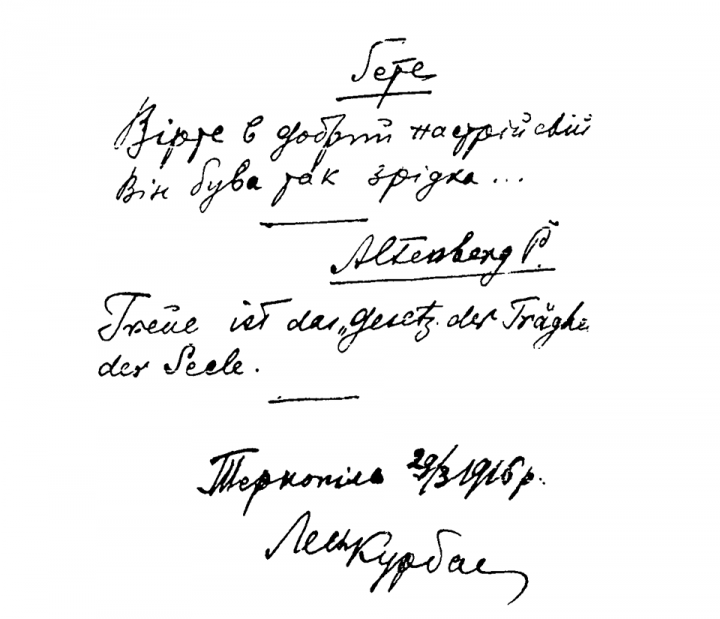 Ґете
Вірте в добрий настрій свій
Він бува так зрідка...
Altenberg P.
Treue ist das „Gesetz der Träghe
der Seele.
Тернопіль 29/3 1916 р.
Лесь Курбас